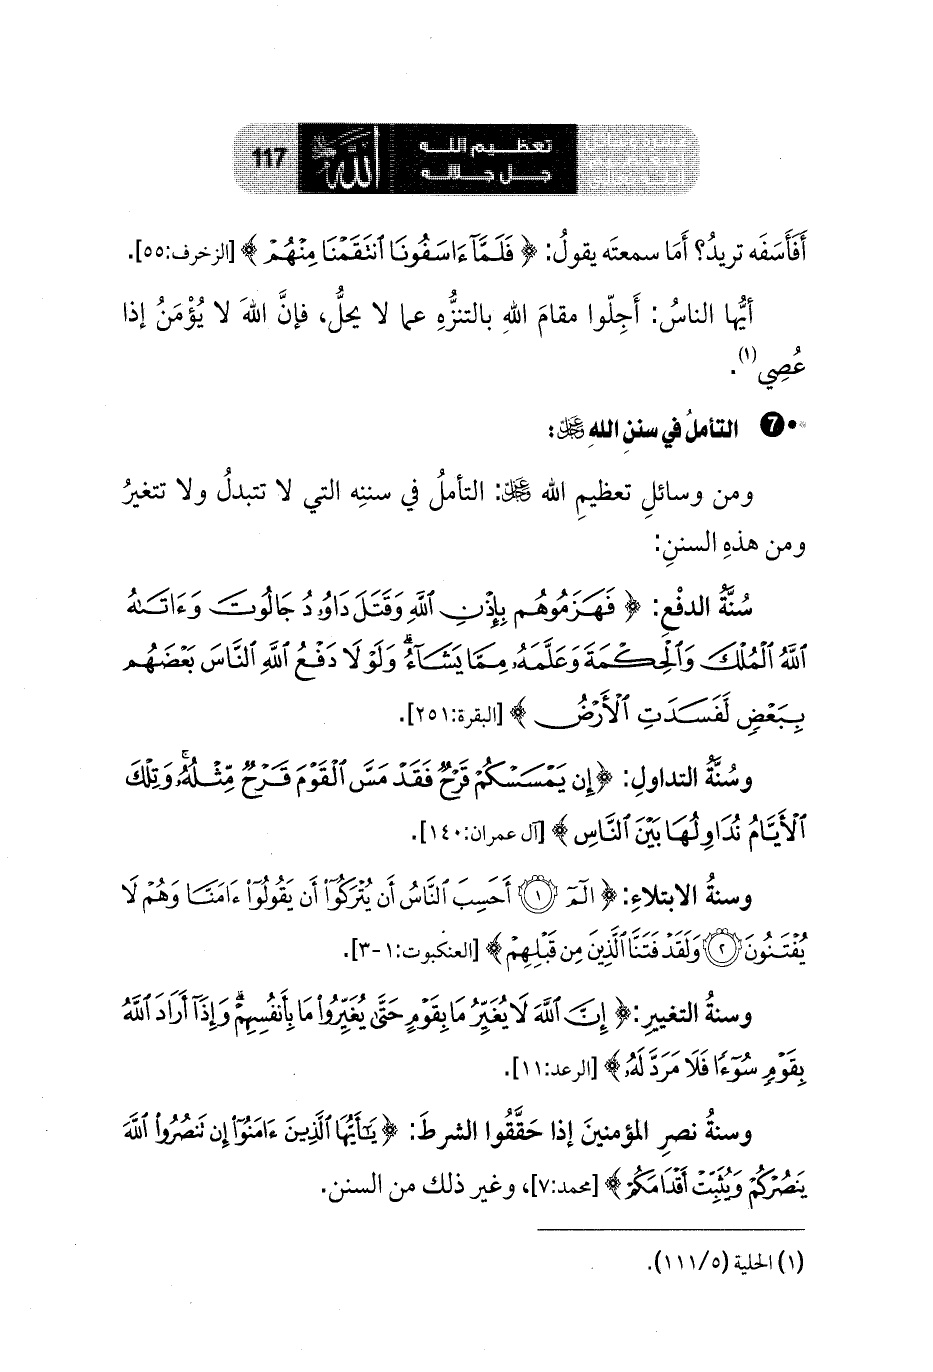 117
تعظيم الله
جل جلاله
أَفَأَسَفَه تريدُ؟ أَمَا سمعتَه يقولُ: ﴿ فَلَمَّآ ءَاسَفُونَا ٱنتَقَمْنَا مِنْهُمْ ﴾ [الزخرف:٥٥].
أيُّها الناسُ: أَجِلّوا مقامَ اللهِ بالتنزُّهِ عما لا يحلُّ، فإنَّ اللهَ لا يُؤْمَنُ إذا
عُصِي(١).
7 التأملُ في سننِ اللهِ ﷻ:
ومن وسائلِ تعظيمِ الله ﷻ: التأملُ في سننِه التي لا تتبدلُ ولا تتغيرُ
ومن هذهِ السننِ:
سُنَّةُ الدفْعِ: ﴿ فَهَزَمُوهُم بِإِذْنِ ٱللَّهِ وَقَتَلَ دَاوُۥدُ جَالُوتَ وَءَاتَىٰهُ
ٱللَّهُ ٱلْمُلْكَ وَٱلْحِكْمَةَ وَعَلَّمَهُۥ مِمَّا يَشَآءُ ۗ وَلَوْلَا دَفْعُ ٱللَّهِ ٱلنَّاسَ بَعْضَهُم
بِبَعْضٍ لَّفَسَدَتِ ٱلْأَرْضُ ﴾ [البقرة:٢٥١].
وسُنَّةُ التداولِ: ﴿ إِن يَمْسَسْكُمْ قَرْحٌ فَقَدْ مَسَّ ٱلْقَوْمَ قَرْحٌ مِّثْلُهُۥ ۚ وَتِلْكَ
ٱلْأَيَّامُ نُدَاوِلُهَا بَيْنَ ٱلنَّاسِ ﴾ [آل عمران:١٤٠].
وسنةُ الابتلاءِ: ﴿ الٓمٓ ١ أَحَسِبَ ٱلنَّاسُ أَن يُتْرَكُوٓا۟ أَن يَقُولُوٓا۟ ءَامَنَّا وَهُمْ لَا
يُفْتَنُونَ ٢ وَلَقَدْ فَتَنَّا ٱلَّذِينَ مِن قَبْلِهِمْ ﴾ [العنكبوت:١-٣].
وسنةُ التغييرِ: ﴿ إِنَّ ٱللَّهَ لَا يُغَيِّرُ مَا بِقَوْمٍ حَتَّىٰ يُغَيِّرُوا۟ مَا بِأَنفُسِهِمْ ۗ وَإِذَآ أَرَادَ ٱللَّهُ
بِقَوْمٍ سُوٓءًا فَلَا مَرَدَّ لَهُۥ ﴾ [الرعد:١١].
وسنةُ نصرِ المؤمنينَ إذا حَقَّقُوا الشرطَ: ﴿ يَٰٓأَيُّهَا ٱلَّذِينَ ءَامَنُوٓا۟ إِن تَنصُرُوا۟ ٱللَّهَ
يَنصُرْكُمْ وَيُثَبِّتْ أَقْدَامَكُمْ ﴾ [محمد:٧]، وغير ذلك من السنن.
(١) الحلية (٥/ ١١١).